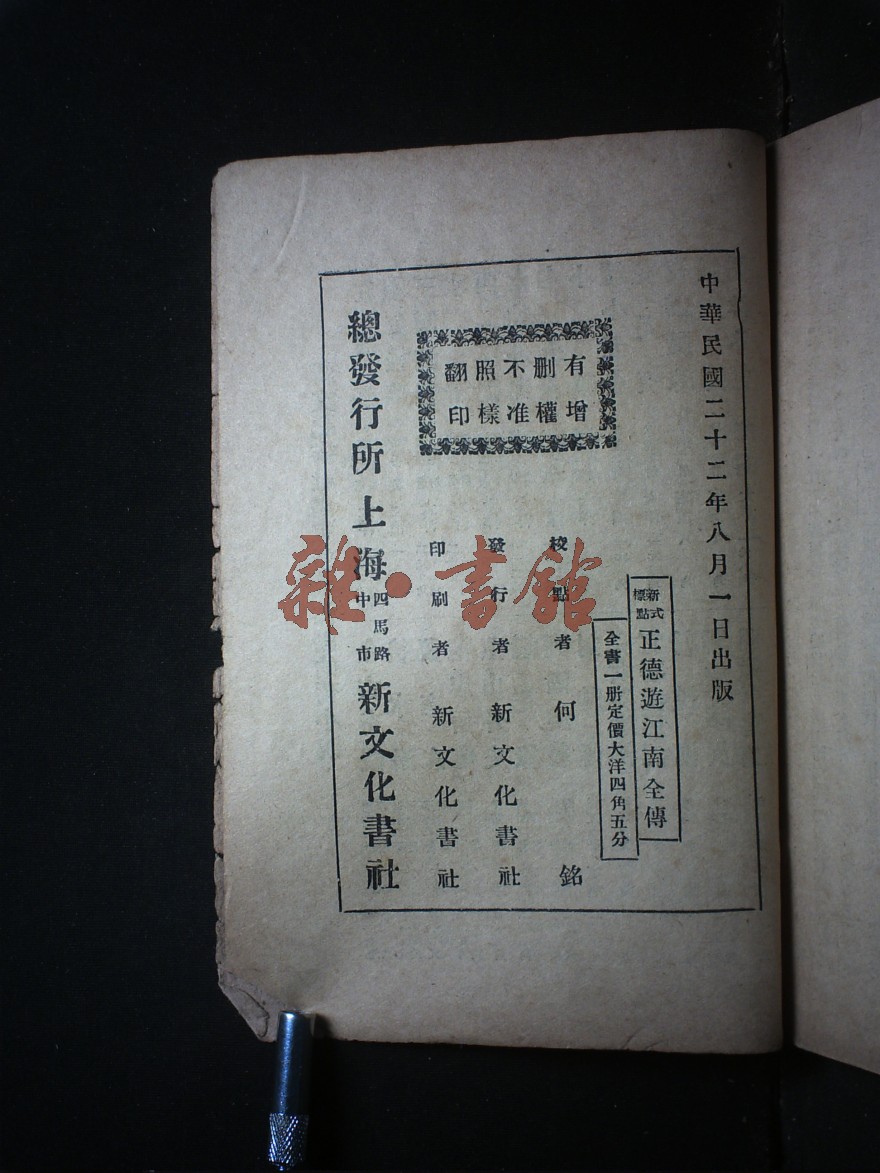 中華民國二十二年八月一日出版
新式標點 正德遊江南全傳
全書一册定價大洋四角五分
有增删權不准照樣翻印
校點者 何銘
發行者 新文化書社
印刷者 新文化書社
總發行所 上海 四馬路中市 新文化書社
雜·書館